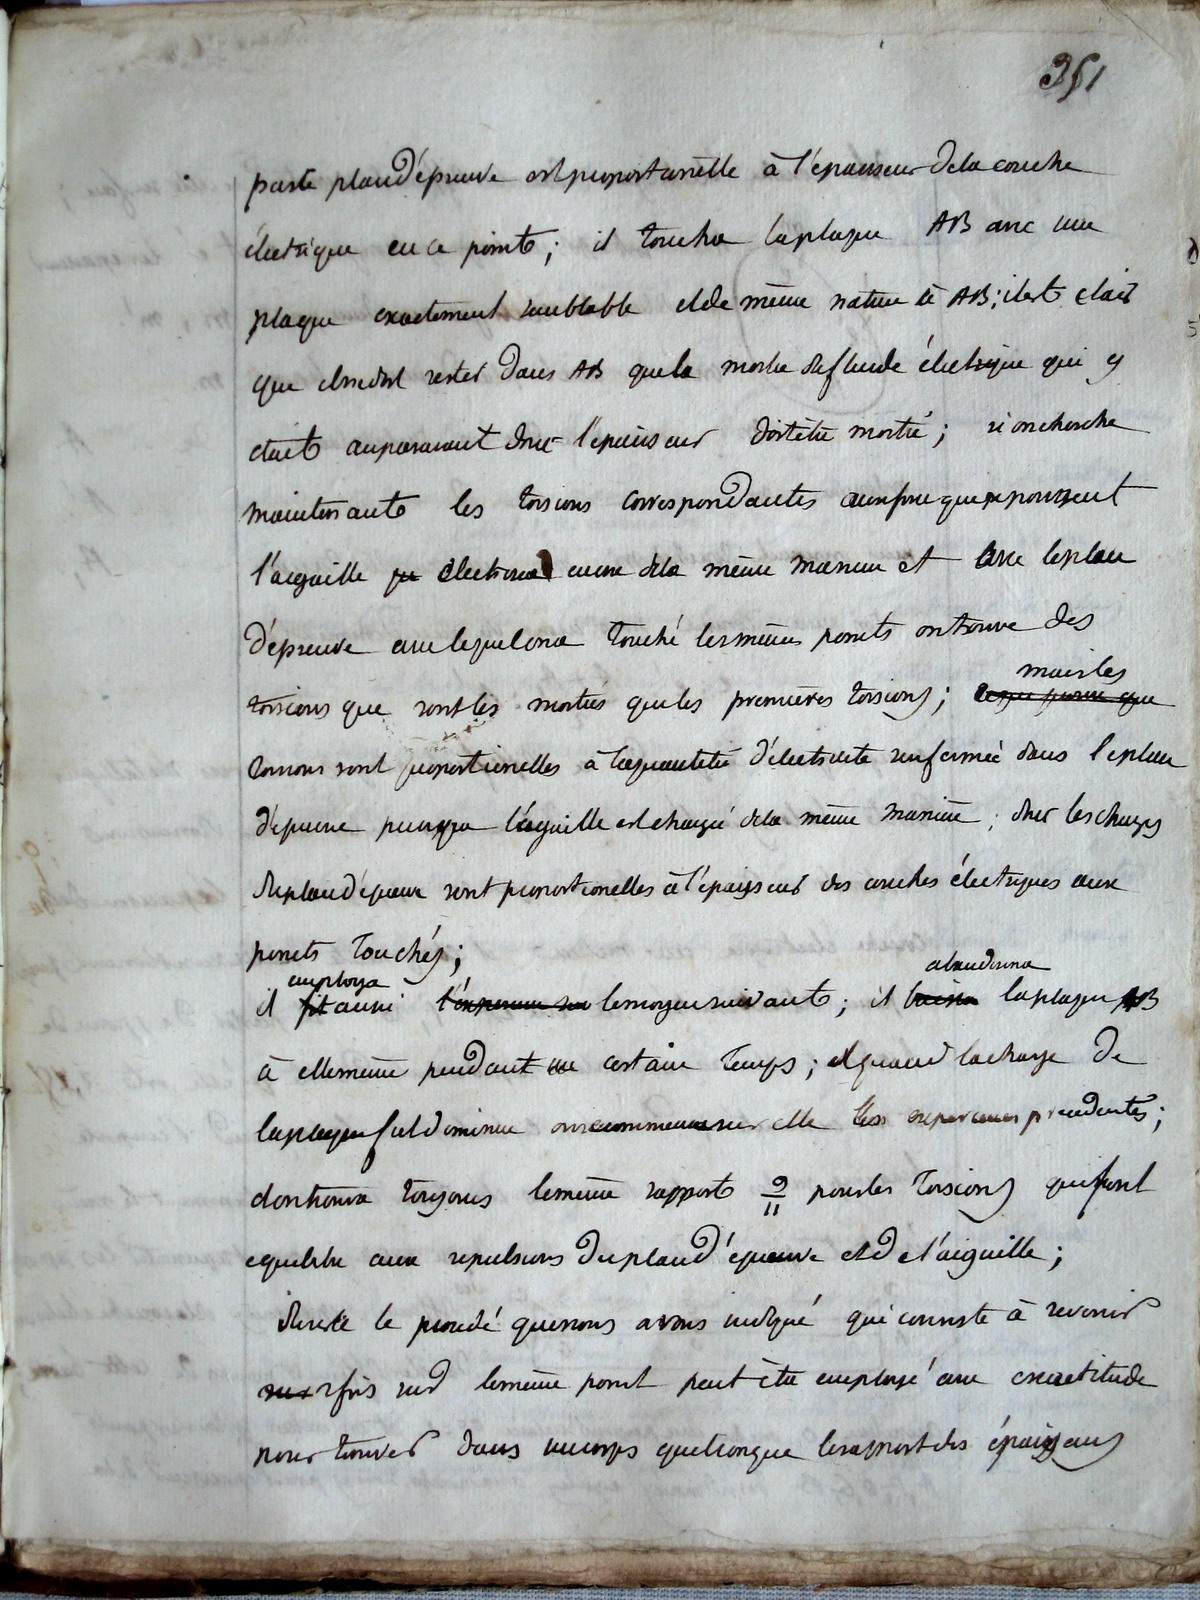 351
par le plan d'épreuve est proportionelle à l'épaisseur de la couche
électrique en ce point; il toucha la plaque AB avec une
plaque exactement semblable et de même nature à AB; il est clair
que il ne doit rester dans AB que la moitié du fluide électrique qui y
était auparavant donc l'épaisseur doit être moitié; si on cherche
maintenant les torsions correspondantes aux que repoussent
l'aiguille électrisée encore de la même maniere et avec le plan
d'épreuve avec lequel on a touché les mêmes points on trouve des
mais les
torsions que sont les moitiés que les premières torsions;
torsions sont proportionelles à la quantité d'électricité renfermée dans le plan
d'épreuve puisque l'aiguille est chargée de la même manière; donc les charges
du plan d'épreuve sont proportionelles à l'épaisseur des couches électriques aux
points touchés;
employa abandonna
il fit aussi l'expérience sur le moyen suivant; il laissa la plaque AB
à elle même pendant un certain temps; et quand la charge de
la plaque fut diminuée on recommença sur elle les experiences précédentes;
et on trouva toujours le même rapport 9/11 pour les torsions qui font
equilibre aux repulsions du plan d'épreuve et de l'aiguille;
du reste le procédé que nous avons indiqué qui consiste à revenir
2 fois sur le même point peut être employé avec exactitude
pour trouver dans un corps quelconque le rapport des épaisseurs